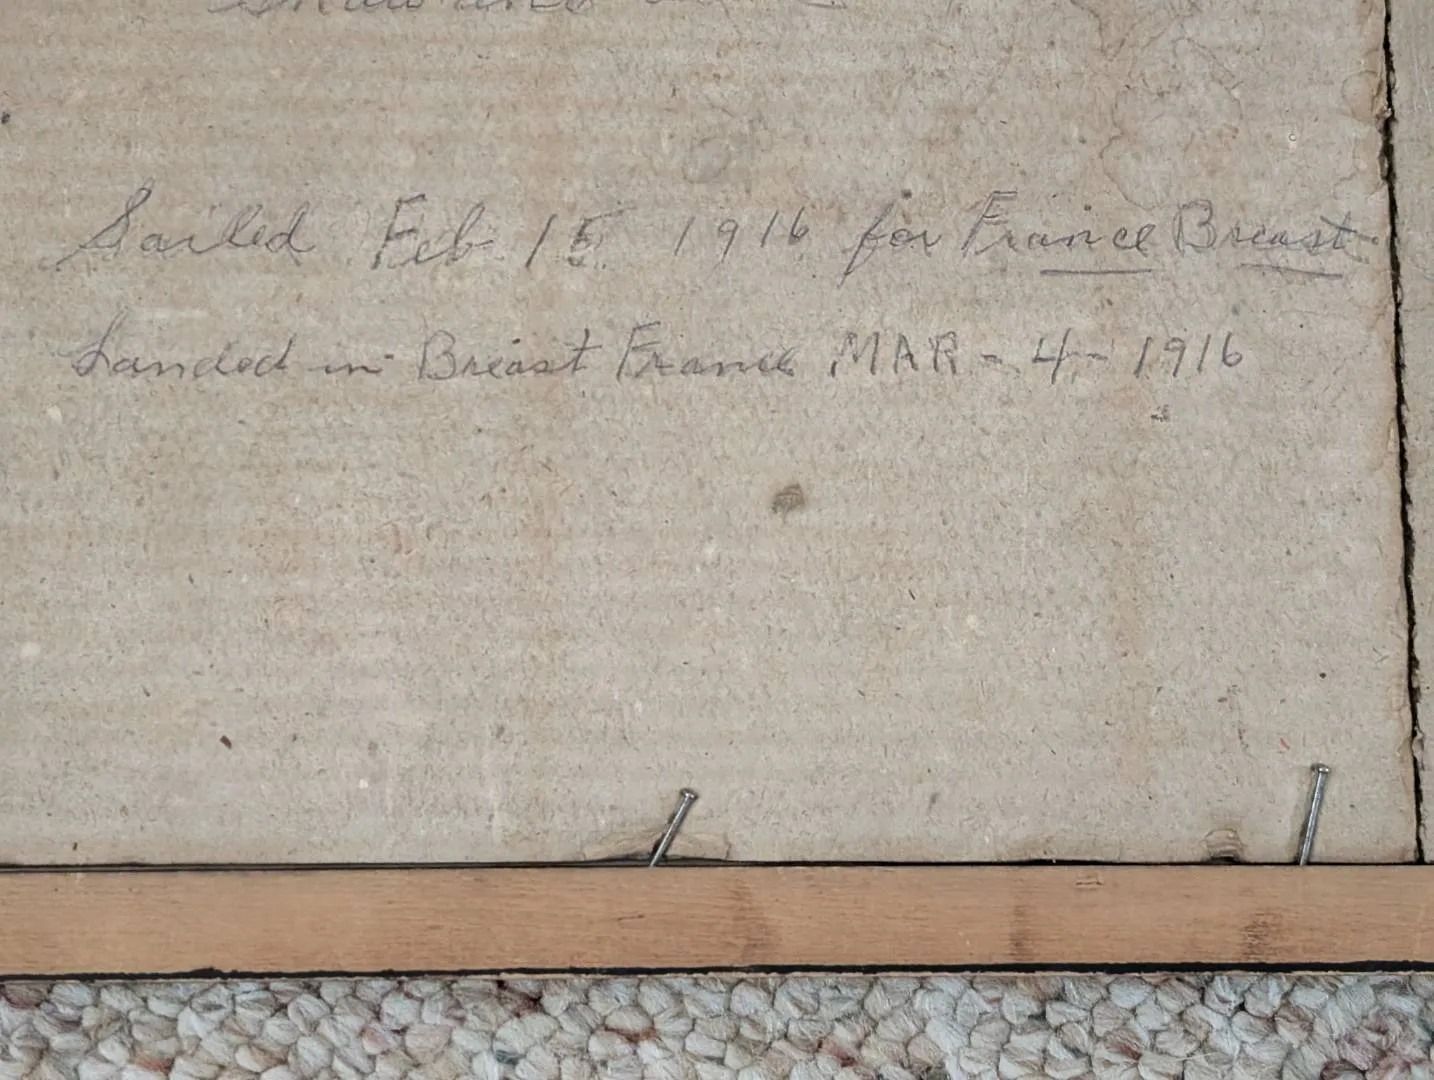 Sailed Feb 15 1916 for France Breast
Landed in Breast France MAR - 4 - 1916